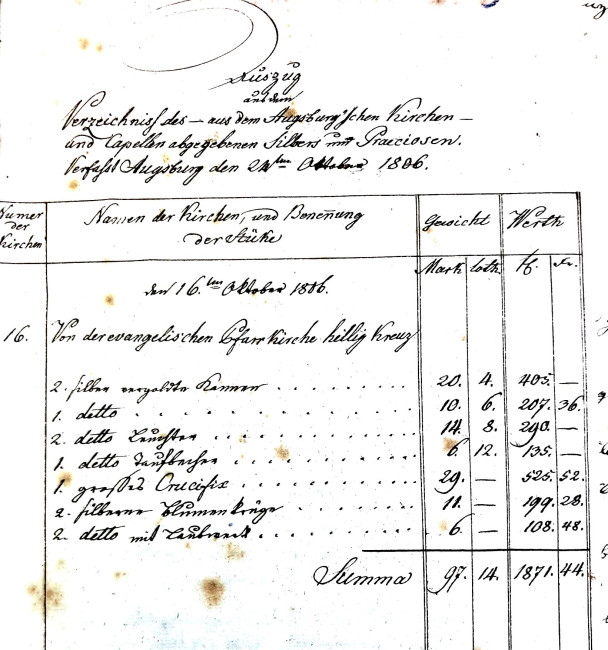 Auszug
aus dem
Verzeichniß des – aus dem Augsburg'schen Kirchen –
und Capellen abgegebenen Silbers und Praeciosen.
Verfaßt Augsburg den 24ten Oktober 1806.
Numer der Kirchen | Namen der Kirchen, und Benennung der Stüke | Gewicht | Werth
Mark | Loth | fl. | Kr.
den 16.ten Oktober 1806.
16. Von der evangelischen Pfarrkirche heillig Kreuz
2. silber vergoldte Kannen . . . . . . . 20. 4. 405. —
1. detto . . . . . . . . . . 10. 6. 207. 36.
2. detto Leuchter . . . . . . . . . . 14. 8. 290. —
1. detto Taufbecher . . . . . . . . . 6. 12. 135. —
1. großes Crucifix . . . . . . . . . 29. — 525. 52.
2. silberne Blumenkrüge . . . . . . . 11. — 199. 28.
2. detto mit Laubwerk . . . . . . . . 6. — 108. 48.
Summa 97. 14. 1871. 44.